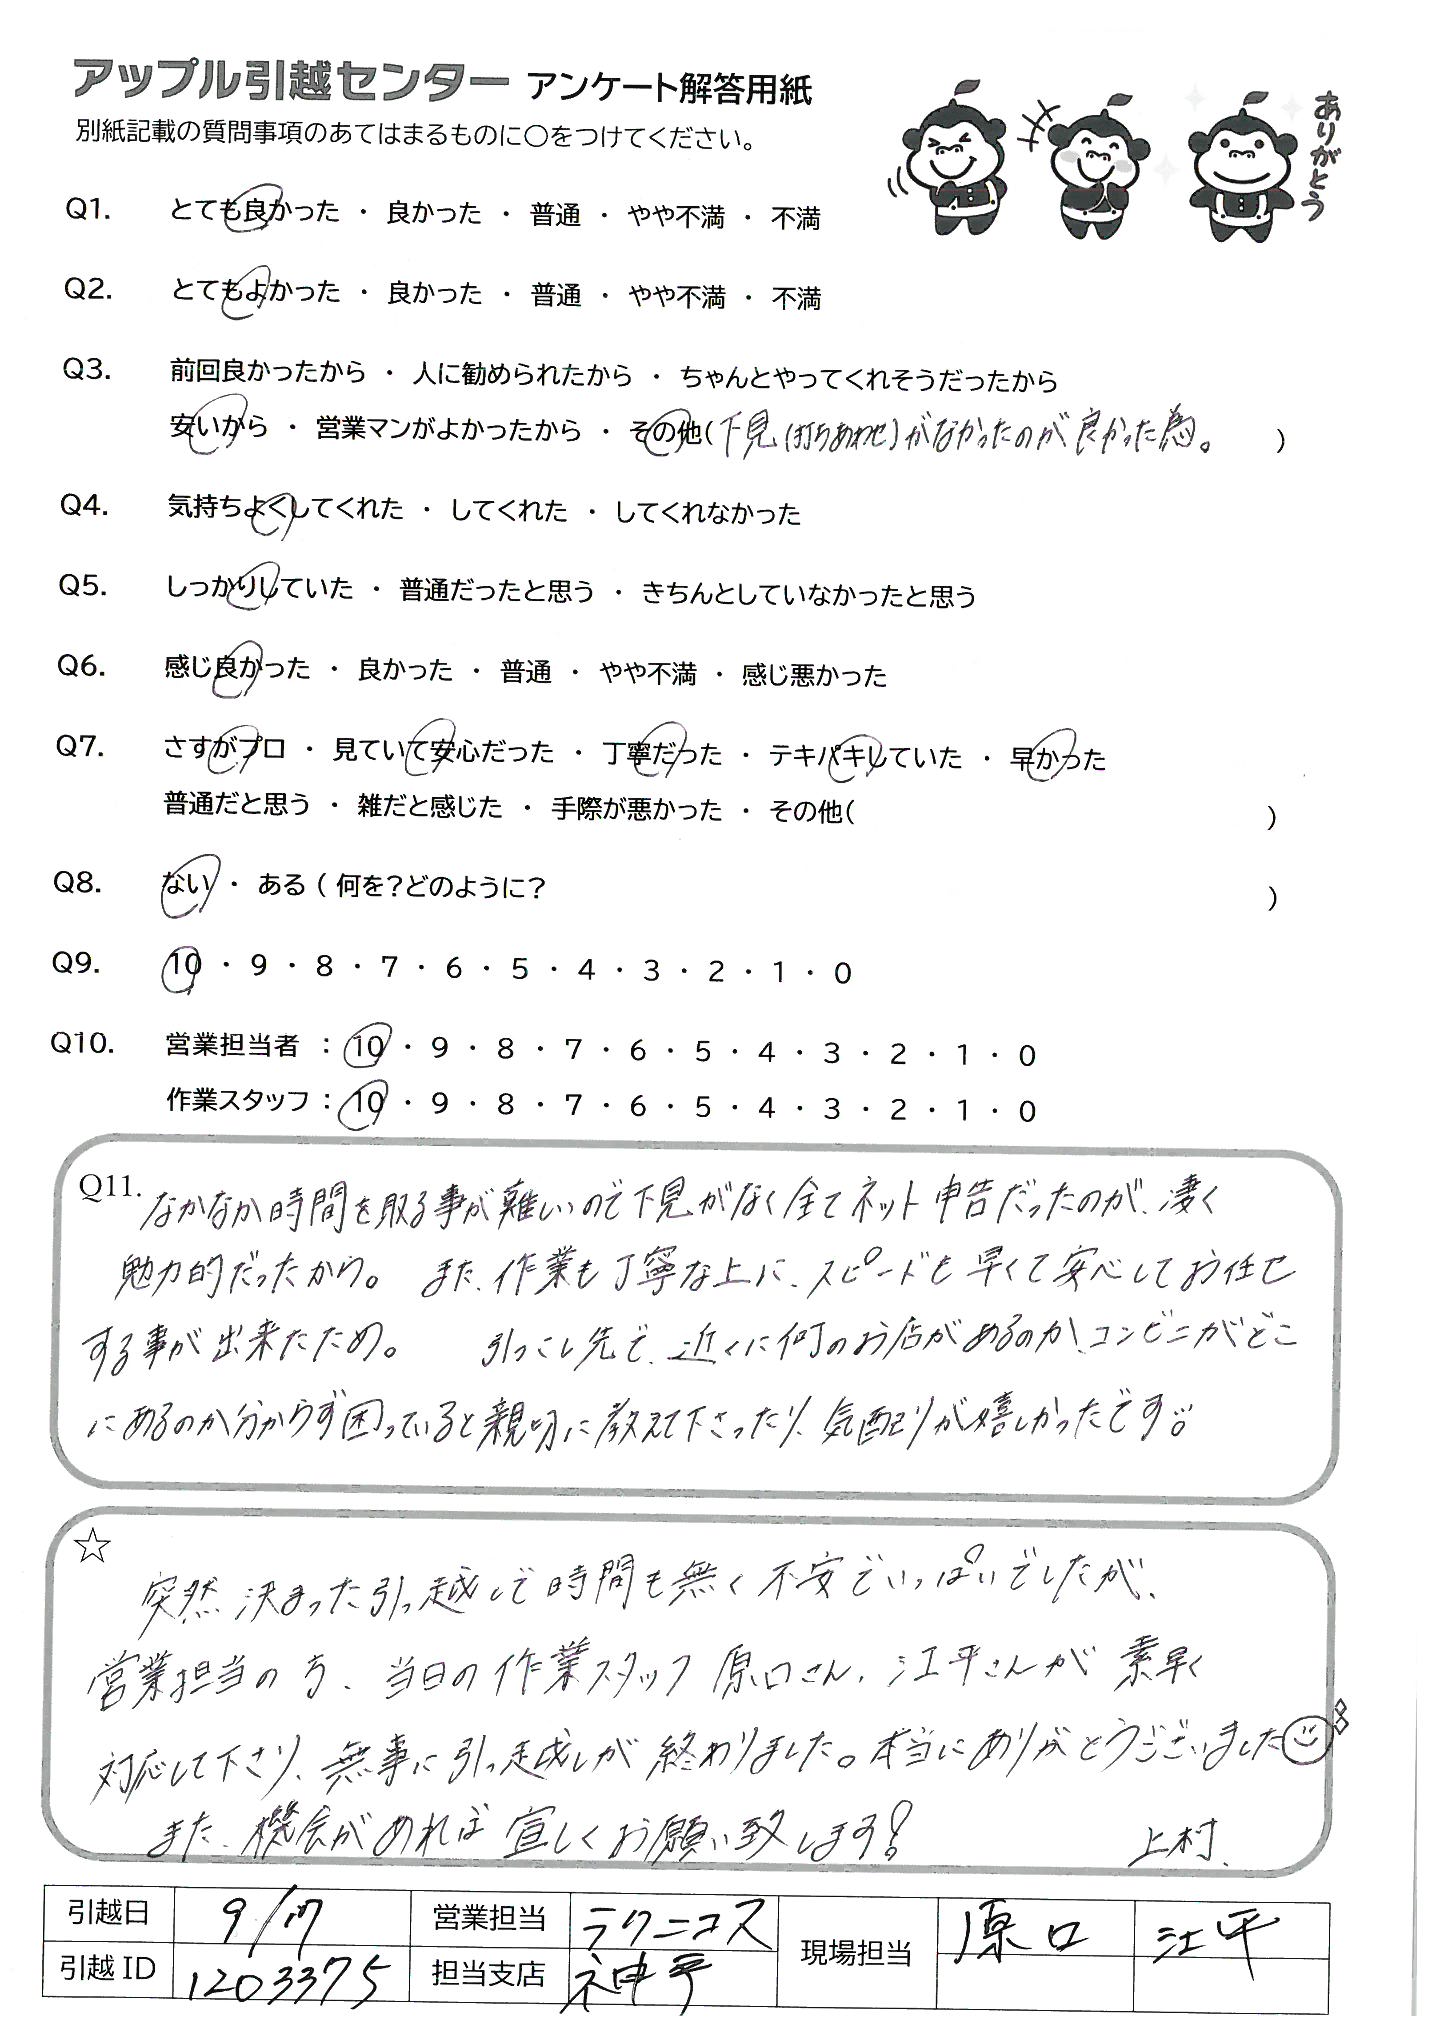 アップル引越センター アンケート解答用紙
別紙記載の質問事項のあてはまるものに○をつけてください。
ありがとう
Q1. とても良かった ・ 良かった ・ 普通 ・ やや不満 ・ 不満
Q2. とてもよかった ・ 良かった ・ 普通 ・ やや不満 ・ 不満
Q3. 前回良かったから ・ 人に勧められたから ・ ちゃんとやってくれそうだったから
安いから ・ 営業マンがよかったから ・ その他(下見(打ちあわせ)がなかったのが良かった為。 )
Q4. 気持ちよくしてくれた ・ してくれた ・ してくれなかった
Q5. しっかりしていた ・ 普通だったと思う ・ きちんとしていなかったと思う
Q6. 感じ良かった ・ 良かった ・ 普通 ・ やや不満 ・ 感じ悪かった
Q7. さすがプロ ・ 見ていて安心だった ・ 丁寧だった ・ テキパキしていた ・ 早かった
普通だと思う ・ 雑だと感じた ・ 手際が悪かった ・ その他( )
Q8. ない ・ ある ( 何を?どのように? )
Q9. 10 ・ 9 ・ 8 ・ 7 ・ 6 ・ 5 ・ 4 ・ 3 ・ 2 ・ 1 ・ 0
Q10. 営業担当者 : 10 ・ 9 ・ 8 ・ 7 ・ 6 ・ 5 ・ 4 ・ 3 ・ 2 ・ 1 ・ 0
作業スタッフ : 10 ・ 9 ・ 8 ・ 7 ・ 6 ・ 5 ・ 4 ・ 3 ・ 2 ・ 1 ・ 0
Q11. なかなか時間を取る事が難しいので下見がなく全てネット申告だったのが、凄く
勉力的だったから。 また、作業も丁寧な上に、スピードも早くて安心してお任せ
する事が出来たため。 引っこし先で、近くに何のお店があるのか、コンビニがどこ
にあるのか分からず困っていると親切に教えて下さったり、気配りが嬉しかったです。
☆
突然決まった引っ越しで時間も無く不安でいっぱいでしたが、
営業担当の方、当日の作業スタッフ 原口さん、江平さんが素早く
対応して下さり、無事に引っ越しが終わりました。本当にありがとうございました
また、機会があれば宜しくお願い致します! 上村
引越日 9/17 営業担当 テクニコス 現場担当 原口 江平
引越 ID 1203375 担当支店 神平